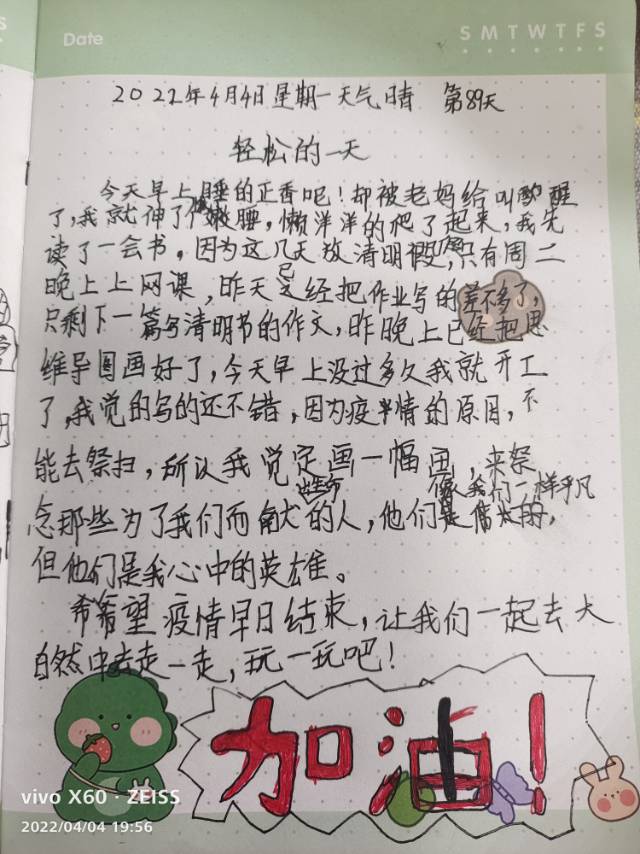 Date
S M T W T F S
2022年4月4日 星期一 天气晴 第89天
轻松的一天
今天早上睡的正香呢！却被老妈给叫醒
了，我就伸了个懒腰，懒洋洋的爬了起来，我先
读了一会书，因为这几天放清明假，只有周二
晚上上网课，昨天已经把作业写的差不多了，
只剩下一篇写清明节的作文，昨晚上已经把思
维导图画好了，今天早上没过多久我就开工
了，我觉的写的还不错，因为疫情的原因，不
能去祭扫，所以我觉定画一幅画，来祭
念那些为了我们而牺牲的人，他们像我们一样平凡，
但他们是我心中的英雄。
希希望疫情早日结束，让我们一起去大
自然中去走一走，玩一玩吧！
加油！
vivo X60 · ZEISS
2022/04/04 19:56